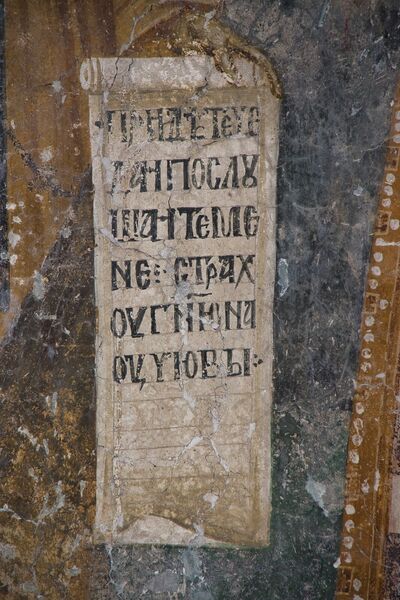 ·ПРИДѢТЕЧЕ
ДАИПОСЛУ
ШАИТЕМЕ
НЕ:·СТРАХ
ОУГН҃ЮНА
ОУЦУЮВЫ:·